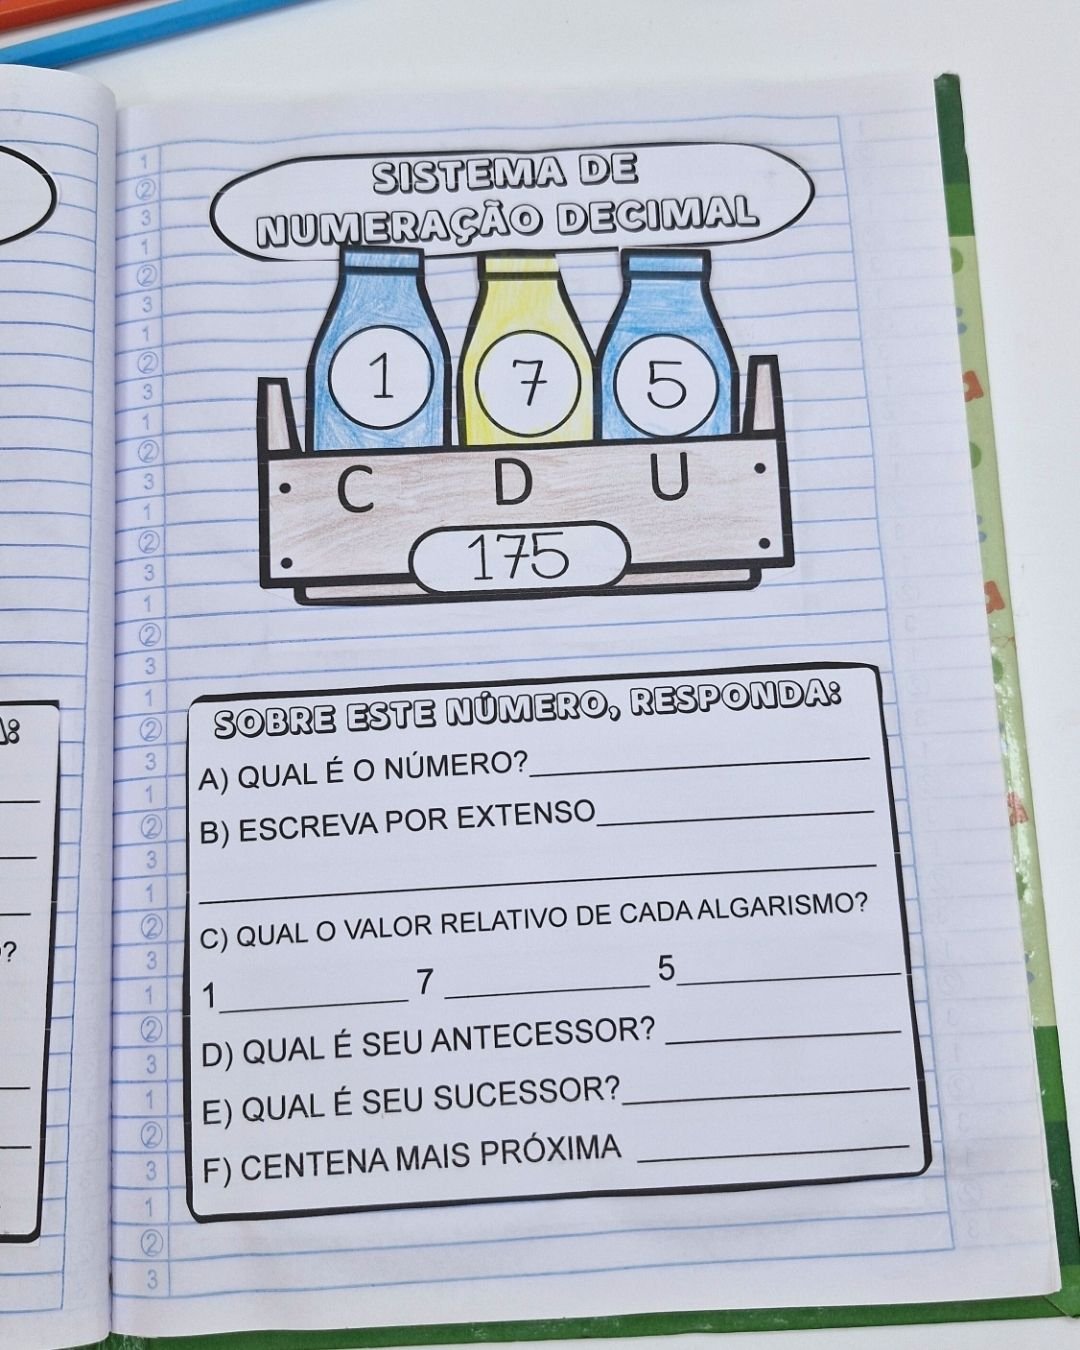 SISTEMA DE
NUMERAÇÃO DECIMAL
1 7 5
C D U
175
SOBRE ESTE NÚMERO, RESPONDA:
A) QUAL É O NÚMERO?
B) ESCREVA POR EXTENSO
C) QUAL O VALOR RELATIVO DE CADA ALGARISMO?
1 7 5
D) QUAL É SEU ANTECESSOR?
E) QUAL É SEU SUCESSOR?
F) CENTENA MAIS PRÓXIMA